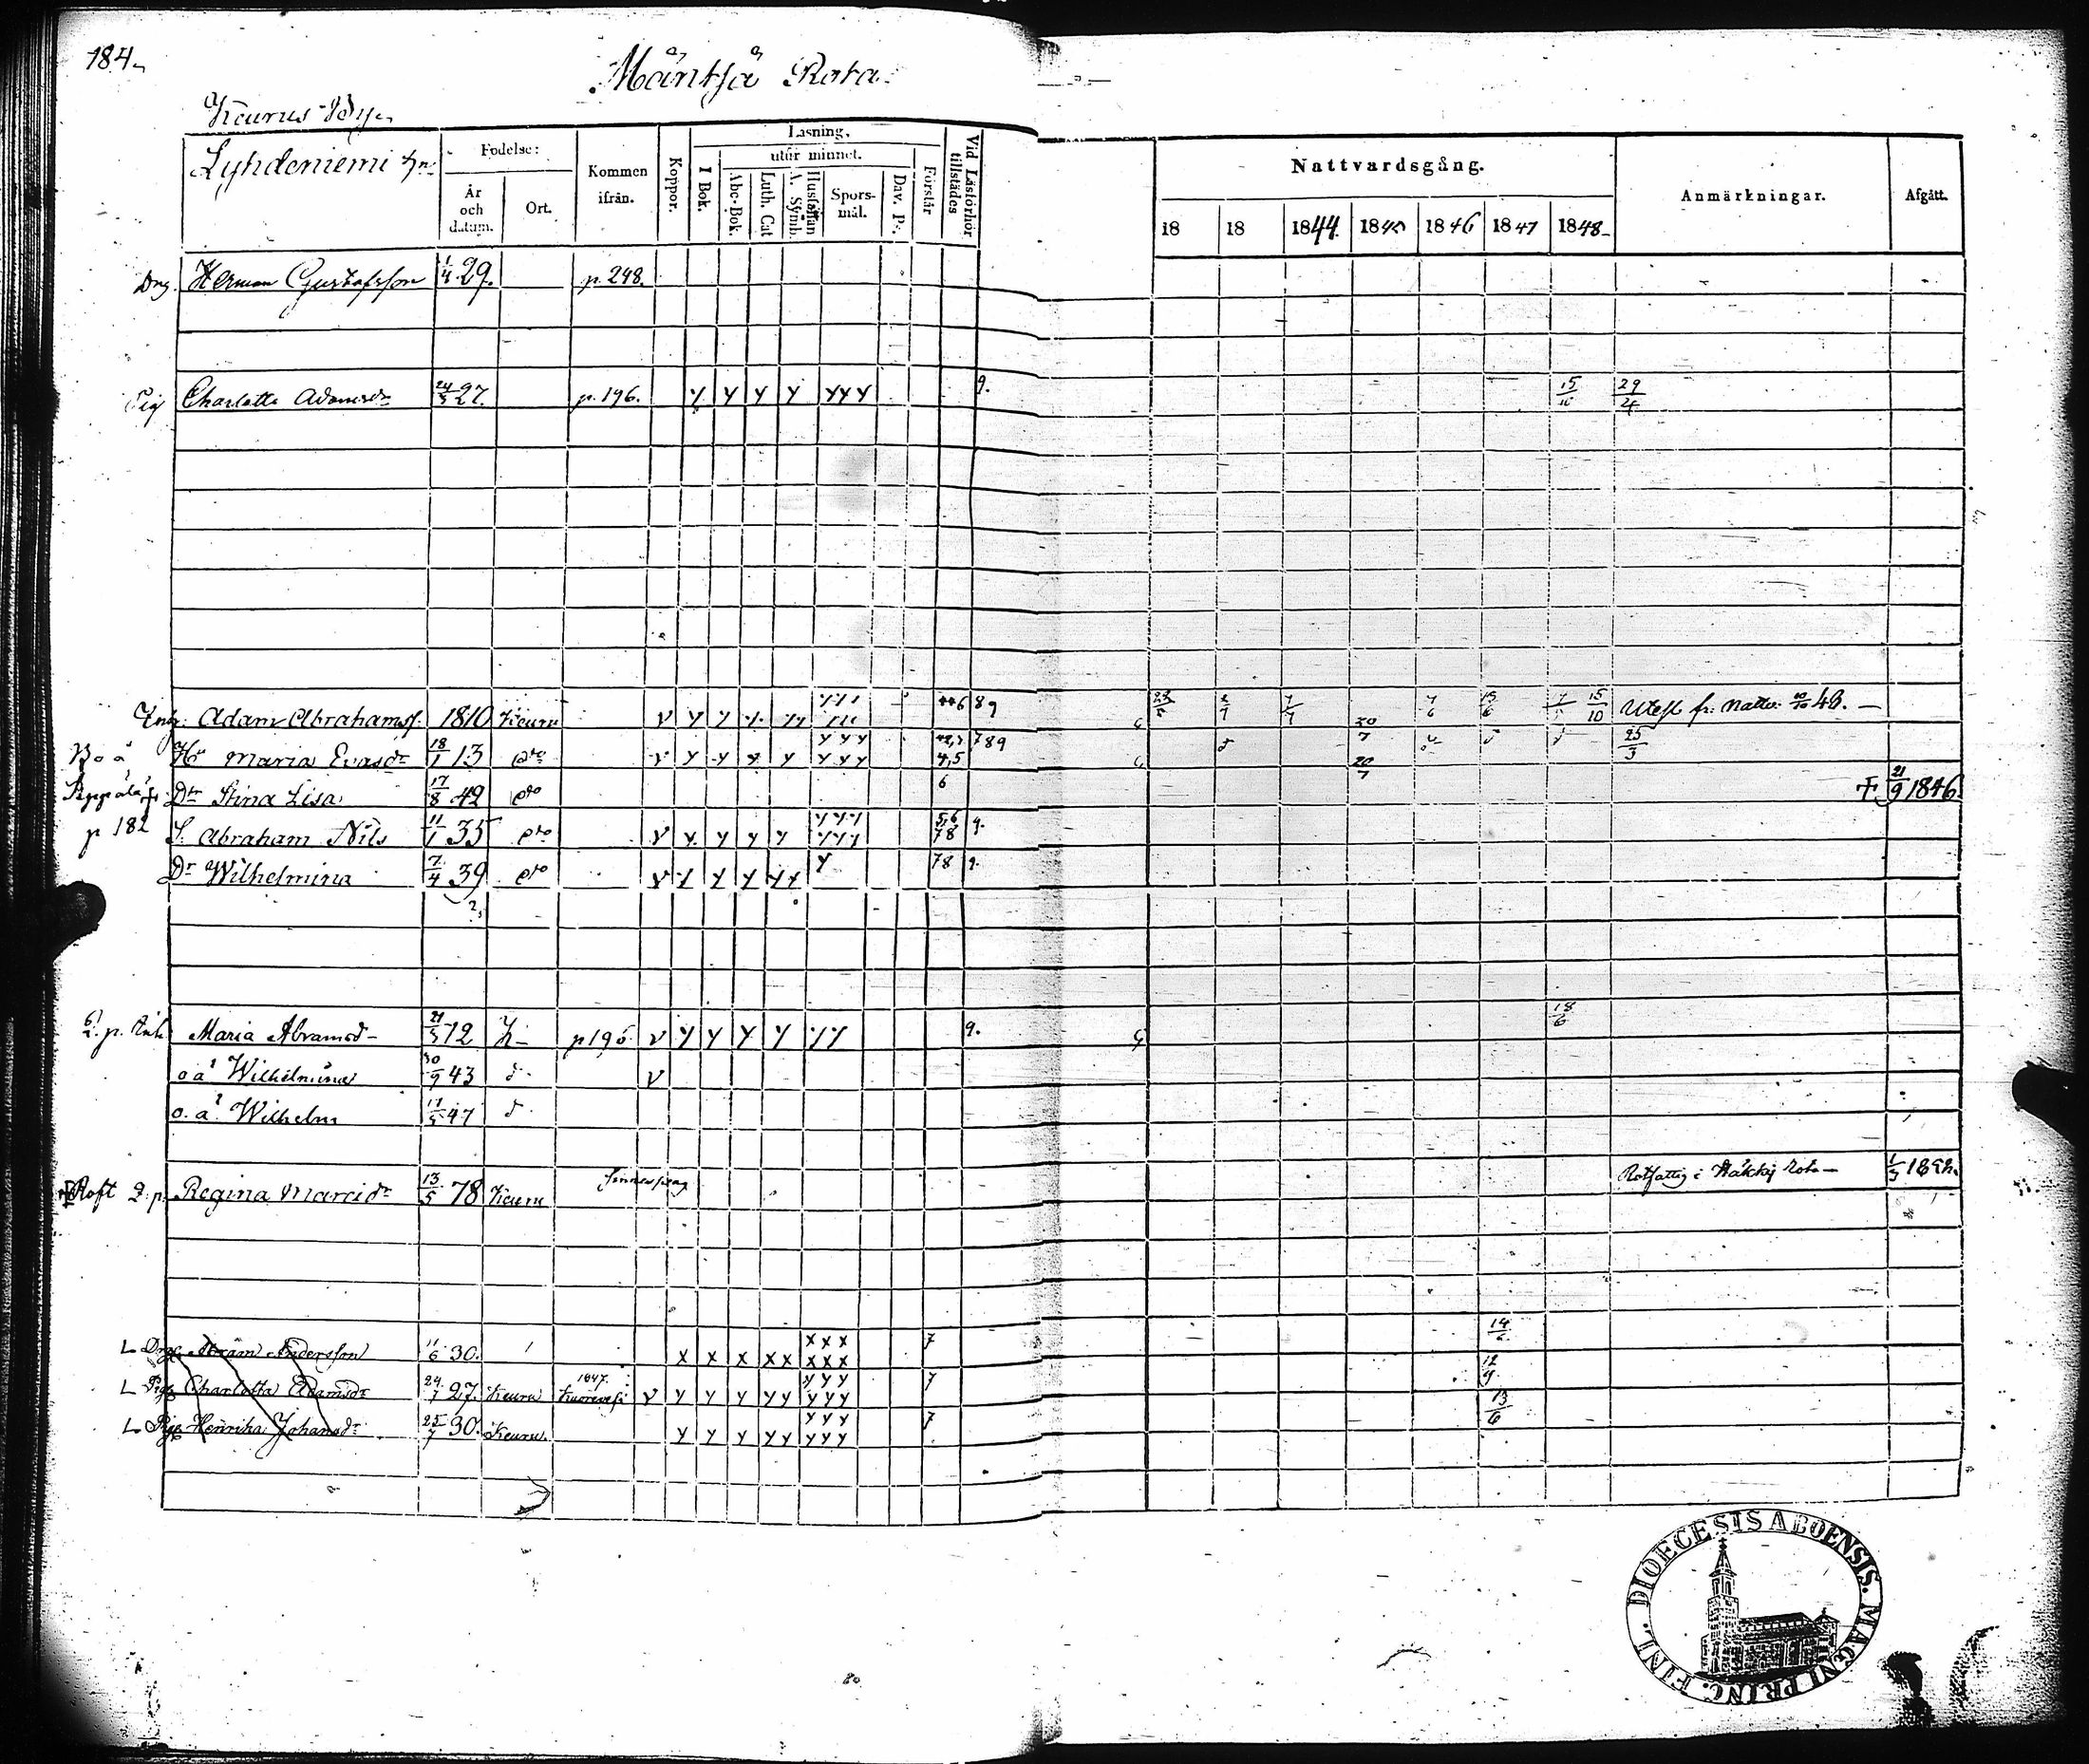 184
Mäntsä Rota
Keurus By
Lyhdeniemi
Födelse:
År och datum.
Ort.
Kommen ifrån.
Koppor.
Läsning.
I Bok.
utur minnet.
Abc-Bok.
Luth. Cat
A. Symb.
Hustaflan
Spors-mål.
Dav. Ps.
Förstår
Vid Läsförhör tillstädes
Nattvardsgång.
18 18 1844 1845 1846 1847 1848
Anmärkningar.
Afgått.
Drg. Herman Gustafsson 1/4 29. p. 248.
Pig Charlotta Adamsdr 24/3 27. p. 196. y y y y yyy 9. 15/10 29/4
Adam Abrahamss. 1810 Keuru v y y y yy 6 8 9 15/10
Hu Maria Evasdr 18/1 13 dto v y y y y yyy 4,5 7 8 9 20/7 25/3
Dtr Stina Lisa 17/8 42 dto 6 † 21/9 1846
p 182
S. Abraham Nils 11/1 35 dto v y y y y yyy 5,6 78 9.
Dr Wilhelmina 7/4 39 dto v y y y yy y 78 9.
Maria Abramsd 21/3 72 K p 195 v y y y y yy 9. 18/6
o.ä. Wilhelmina 30/9 43 d v
o.ä. Wilhelm 17/5 47 d
Regina Marcidr 13/5 78 Keuru Rotfattig i Rota
L Drg Abram Andersson 11/6 30. x x x xx xxx xxx 7 14/6
L Pig Charlotta Adamsdr 24/7 27. Keuru 1847. Kuorevesi v y y y yy yyy yyy 7 12/9
L Pig Henrika Johansdr 25/7 30. Keuru y y y yy yyy yyy 7 13/6
DIOECESIS ABOENSIS. MAGNI PRINC. FINL.